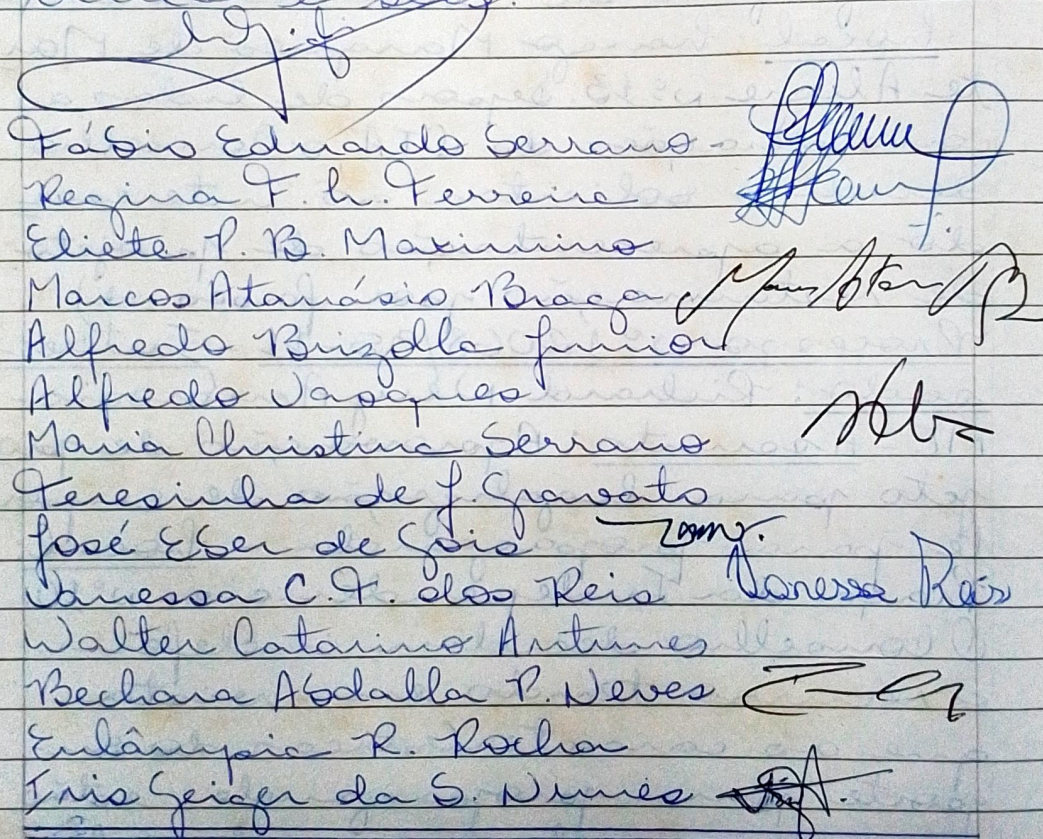 Fábio Eduardo Serrano -
Regina F. L. Ferreira
Eliete P. B. Maximino
Marcos Atanásio Braga
Alfredo Brizolla Junior
Alfredo Vasques
Maria Christina Serrano
Teresinha de J. Gravato
José Eber de Gois
Vanessa C. F. dos Reis Vanessa Reis
Walter Catarino Antunes
Bechara Abdalla P. Neves
Eulâmpia R. Rocha
Iris Geiger da S. Nunes